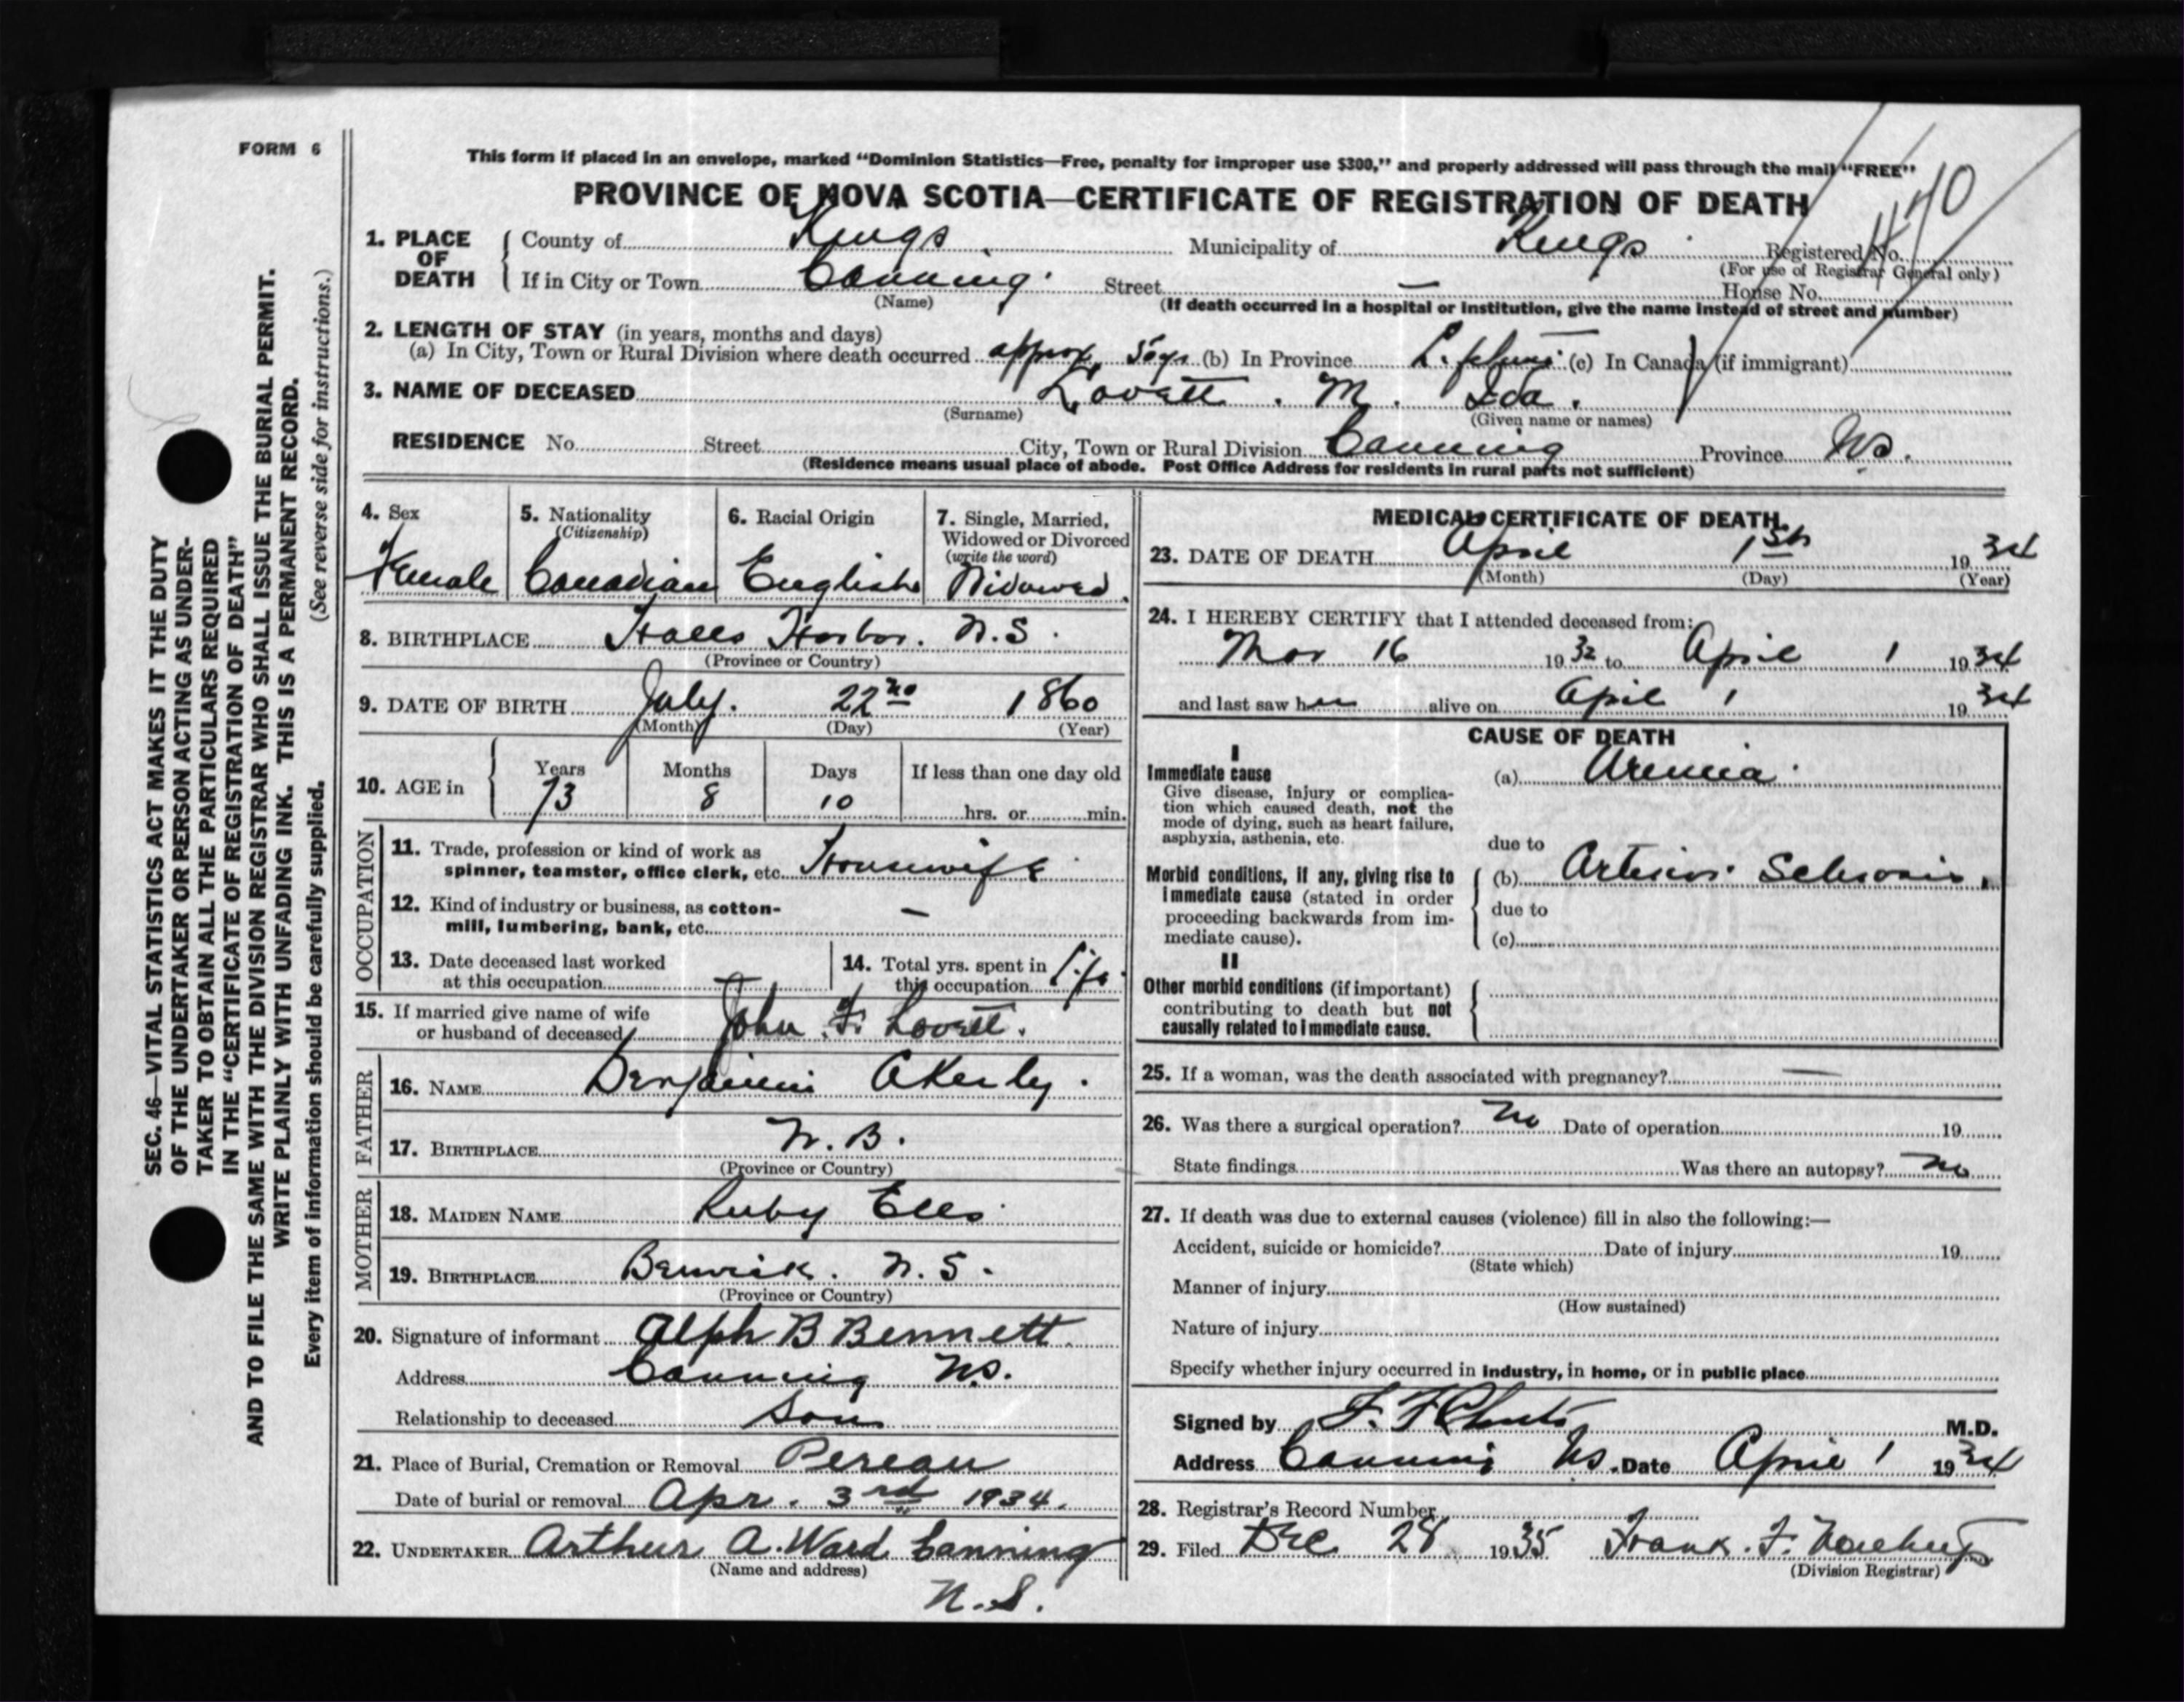 FORM 6
This form if placed in an envelope, marked “Dominion Statistics—Free, penalty for improper use $300,” and properly addressed will pass through the mail “FREE”
PROVINCE OF NOVA SCOTIA—CERTIFICATE OF REGISTRATION OF DEATH
1. PLACE OF DEATH County of Kings Municipality of Kings Registered No.
(For use of Registrar General only)
If in City or Town Canning Street — House No.
(Name) (If death occurred in a hospital or institution, give the name instead of street and number)
2. LENGTH OF STAY (in years, months and days)
(a) In City, Town or Rural Division where death occurred approx (b) In Province (c) In Canada (if immigrant)
3. NAME OF DECEASED Lovett. M. Ida.
(Surname) (Given name or names)
RESIDENCE No. Street City, Town or Rural Division Canning Province NS.
(Residence means usual place of abode. Post Office Address for residents in rural parts not sufficient)
4. Sex Female
5. Nationality (Citizenship) Canadian
6. Racial Origin English
7. Single, Married, Widowed or Divorced (write the word) Widowed.
8. BIRTHPLACE Halls Harbor. N.S.
(Province or Country)
9. DATE OF BIRTH July. 22nd 1860
(Month) (Day) (Year)
10. AGE in Years 73 Months 8 Days 10 If less than one day old hrs. or min.
OCCUPATION
11. Trade, profession or kind of work as
spinner, teamster, office clerk, etc. Housewife
12. Kind of industry or business, as cotton- —
mill, lumbering, bank, etc.
13. Date deceased last worked
at this occupation
14. Total yrs. spent in
this occupation Life.
15. If married give name of wife
or husband of deceased John F. Lovett.
FATHER
16. NAME Benjamin Akerly.
17. BIRTHPLACE N.B.
(Province or Country)
MOTHER
18. MAIDEN NAME Ruby Ells
19. BIRTHPLACE Berwick. N.S.
(Province or Country)
20. Signature of informant Alph B Bennett
Address Canning N.S.
Relationship to deceased Son
21. Place of Burial, Cremation or Removal Pereau
Date of burial or removal Apr. 3rd 1934.
22. UNDERTAKER Arthur A. Ward Canning
(Name and address)
N.S.
MEDICAL CERTIFICATE OF DEATH
23. DATE OF DEATH April 1st 1934
(Month) (Day) (Year)
24. I HEREBY CERTIFY that I attended deceased from:
Mar 16 1932 to April 1 1934
and last saw her alive on April 1 1934
CAUSE OF DEATH
I
Immediate cause (a) Uremia
Give disease, injury or complica-
tion which caused death, not the
mode of dying, such as heart failure,
asphyxia, asthenia, etc.
due to
Morbid conditions, if any, giving rise to
immediate cause (stated in order
proceeding backwards from im-
mediate cause).
(b)
due to
(c)
II
Other morbid conditions (if important)
contributing to death but not
causally related to immediate cause.
25. If a woman, was the death associated with pregnancy? —
26. Was there a surgical operation? No Date of operation 19
State findings Was there an autopsy? No
27. If death was due to external causes (violence) fill in also the following:—
Accident, suicide or homicide? Date of injury 19
(State which)
Manner of injury
(How sustained)
Nature of injury
Specify whether injury occurred in industry, in home, or in public place
Signed by M.D.
Address Canning NS. Date April 1 1934
28. Registrar's Record Number
29. Filed Dec 28 1935 Frank. F.
(Division Registrar)
SEC. 46—VITAL STATISTICS ACT MAKES IT THE DUTY
OF THE UNDERTAKER OR PERSON ACTING AS UNDER-
TAKER TO OBTAIN ALL THE PARTICULARS REQUIRED
IN THE “CERTIFICATE OF REGISTRATION OF DEATH”
AND TO FILE THE SAME WITH THE DIVISION REGISTRAR WHO SHALL ISSUE THE BURIAL PERMIT.
WRITE PLAINLY WITH UNFADING INK. THIS IS A PERMANENT RECORD.
Every item of information should be carefully supplied. (See reverse side for instructions.)